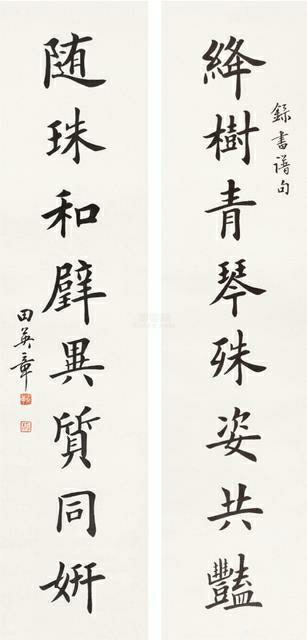 絳樹青琴殊姿共豔
錄書譜句
随珠和璧異質同妍
田英章